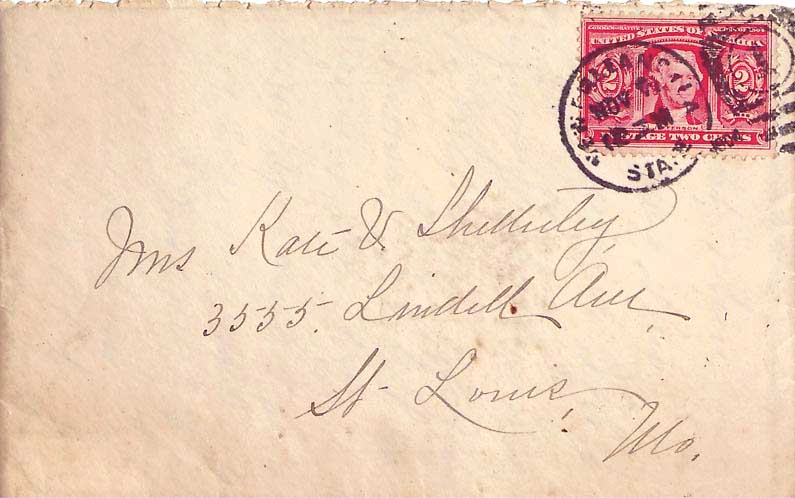 COMMEMORATIVE
UNITED STATES OF AMERICA
2 2
JEFFERSON
POSTAGE TWO CENTS
NOV
STA.
Mrs Kate V. Shelleley
3555. Lindell Ave,
St Louis,
Mo.